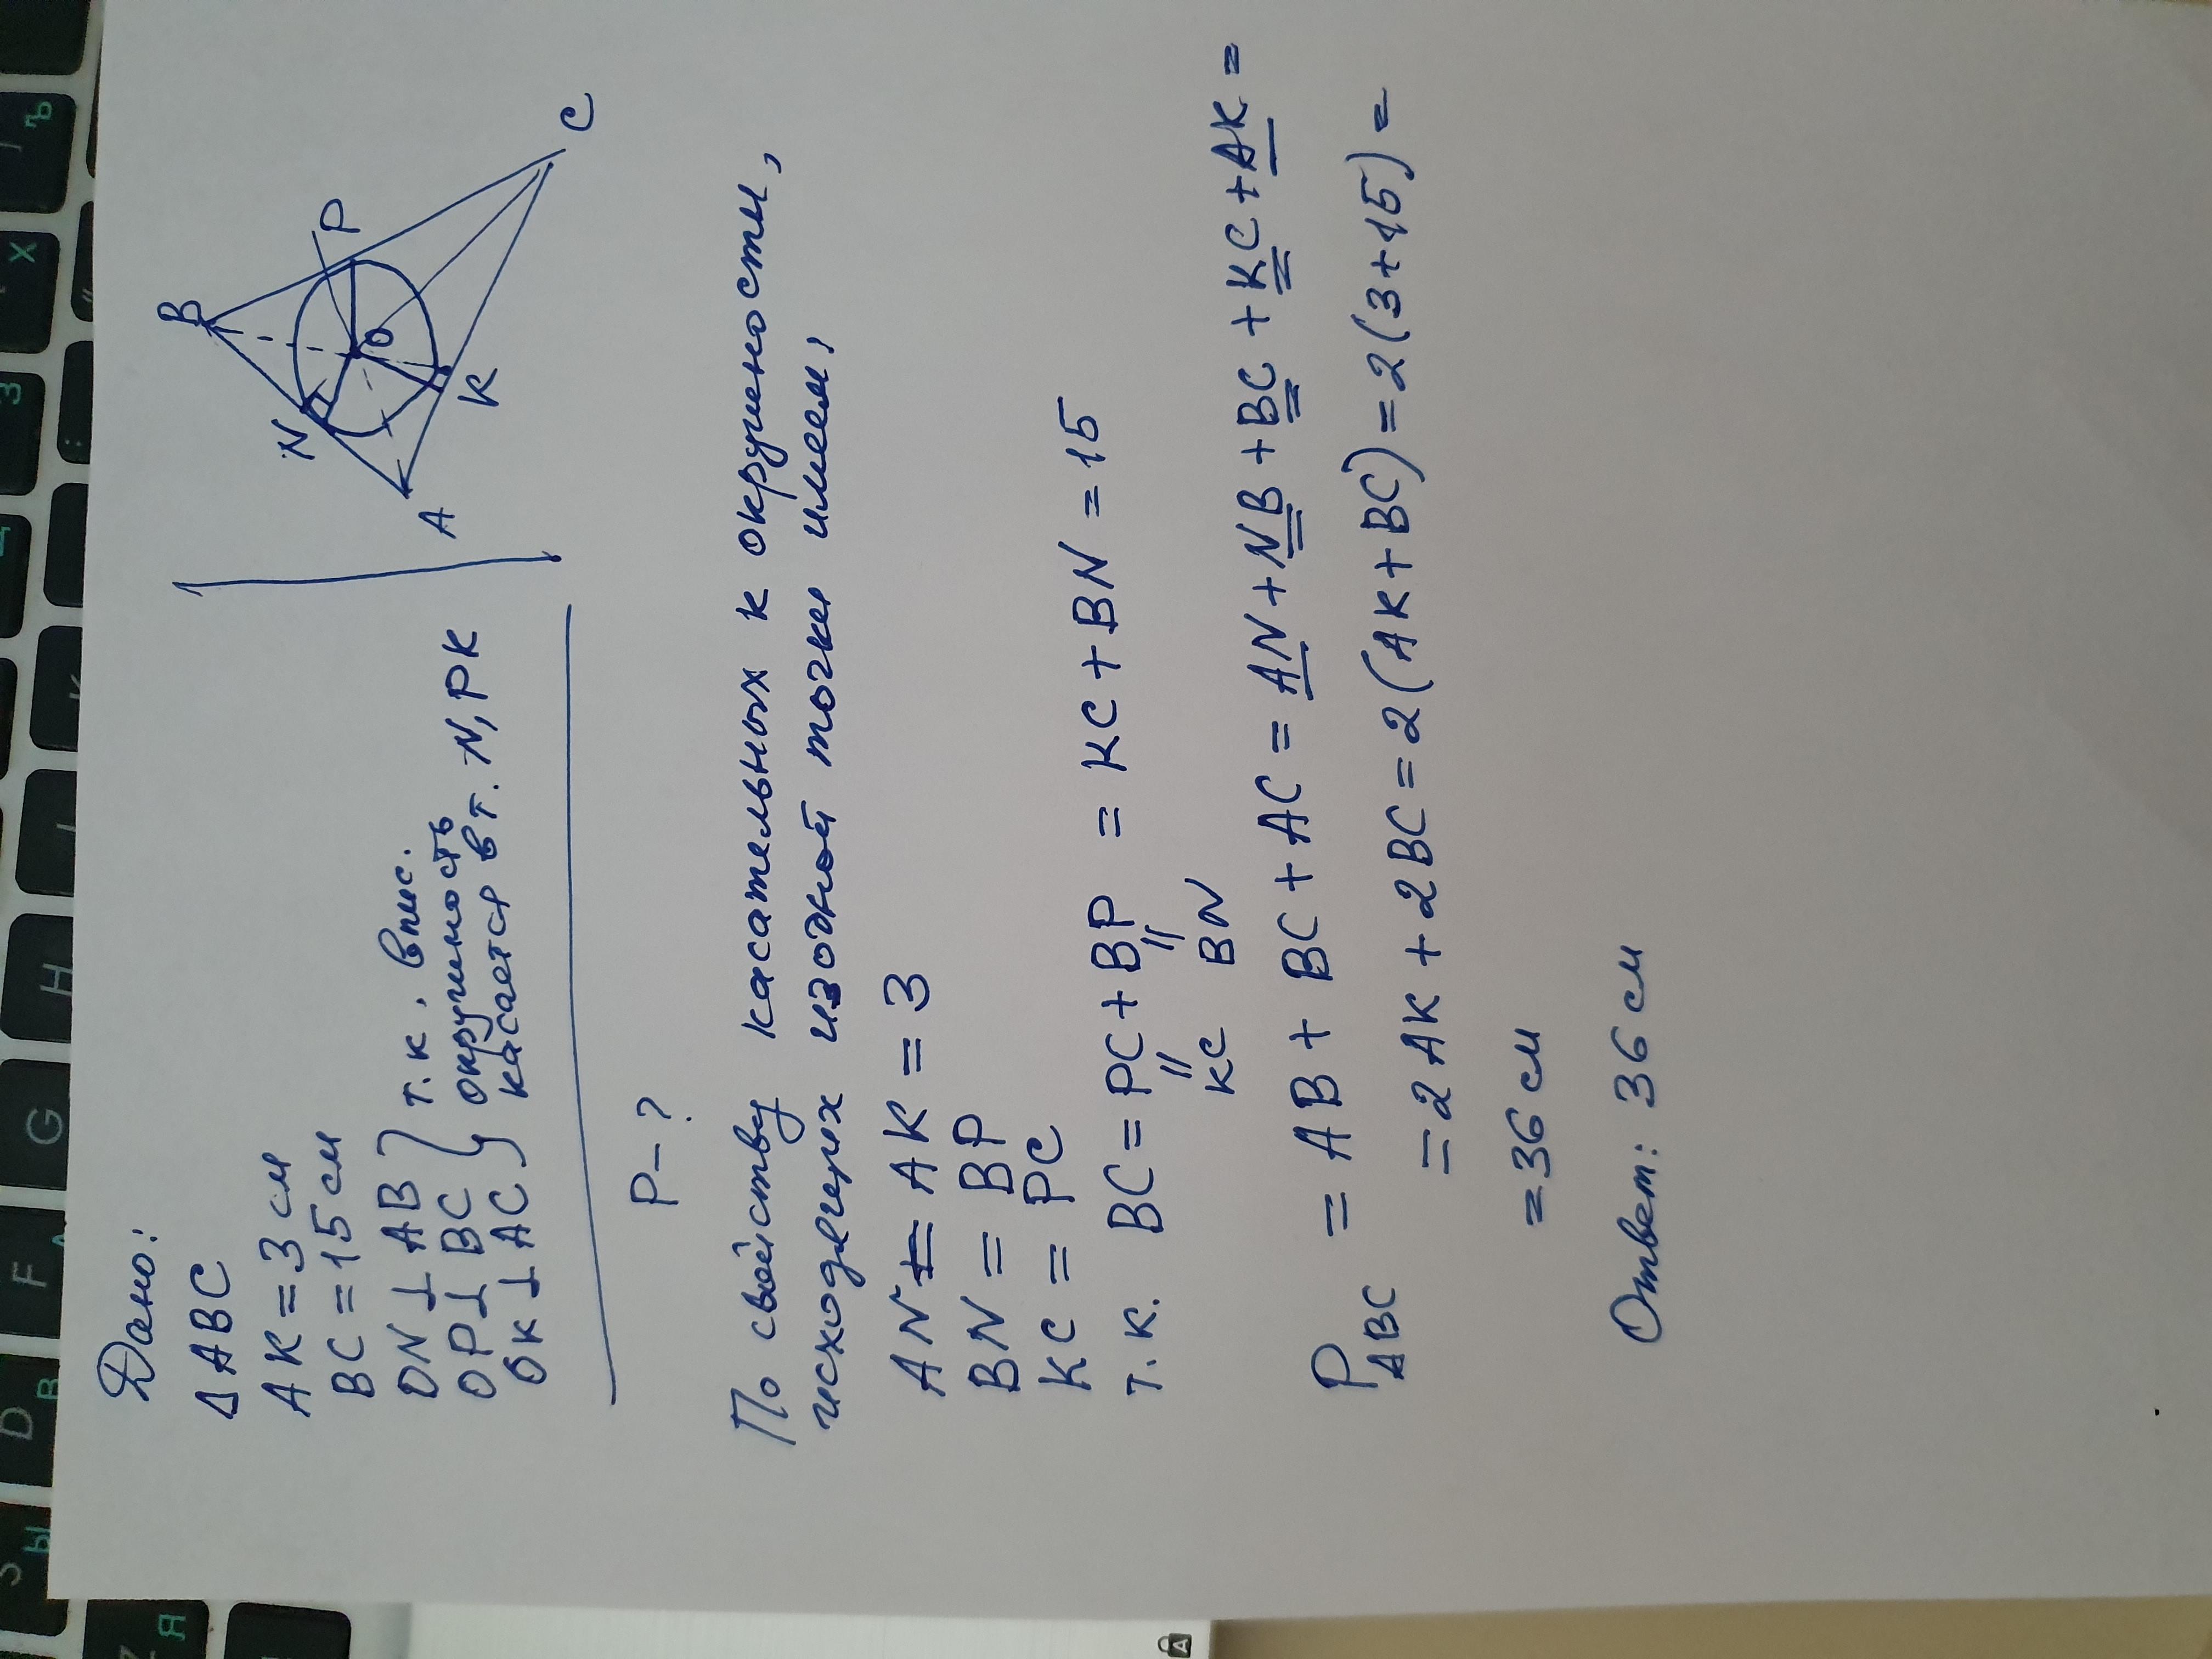 Дано:
Δ ABC
AK = 3 см
BC = 15 см
ON ⊥ AB } т.к. впис.
OP ⊥ BC } окружность
OK ⊥ AC } касается в т. N, P K
B
N
P
O
A
K
C
P - ?
По свойству касательных к окружности,
исходящих из одной точки имеем,
AN = AK = 3
BN = BP
KC = PC
т.к. BC = PC + BP = KC + BN = 15
" "
KC BN
P ABC = AB + BC + AC = AN + NB + BC + KC + AK =
= 2 AK + 2 BC = 2 (AK + BC) = 2 (3 + 15) =
= 36 см
Ответ: 36 см
S Ы
D В
F А
G
H
З
Х
Ъ
Я
A